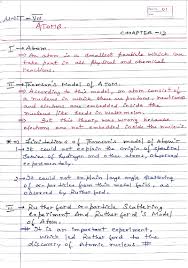 UNIT - VIII
ATOMS
CHAPTER - 12
I → Atom :-
→ An atom is a smallest particle which can
take part in all physical and chemical
reactions.
II → Thomson's Model of Atom :-
→ According to this model, an atom consist of
a nucleus in which there are protons
and electrons are embedded inside the
nucleus.
→ But this theory was wrong because
electrons are not embedded inside the nucleus.
Limitations of Thomson's model of Atom :-
1 → It could not explain the origin of spectral
series of hydrogen and other atoms, observed
experimentally.
2 → It could not explain large angle scattering
of α-particles from thin metal foils, as
observed by Rutherford.
III → Rutherford α-particle Scattering
Experiment And Rutherford's Model
of Atom :-
→ It is an important experiment
which led Rutherford to the
discovery of Atomic nucleus.